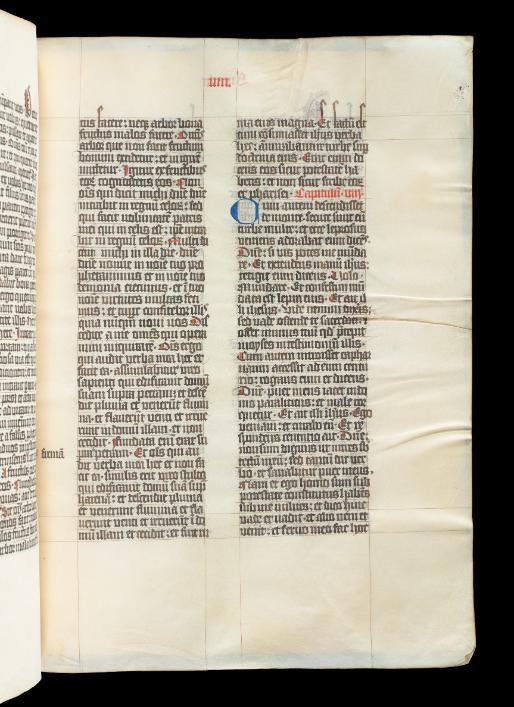 uiii.
facere: neq arbor bona
fructus malos facere. Oms
arbor que non facit fructum
bonum excidetur: et in ignē
mittetur. Igitur ex fructibus
eoꝝ cognoscetis eos. Non
oīs qui dicit michi dñe dñe
intrabit in regnū celoꝝ: sed
qui facit voluntatē patris
mei qui in celis est: ipse intra
bit in regnū celoꝝ. Multi di
cent michi in illa die: dñe
dñe nonne in noīe tuo pro
phetauimus et in noīe tuo
demonia eiecimus: et in tuo
noīe virtutes multas feci
mus: et tunc confitebor illis
quia nūqm noui uos. Dis
cedite a me omēs qui opera
mini iniquitatē. Oīs ergo
qui audit verba mea hec et
facit ea: assimilabitur viro
sapienti qui edificauit domū
suam supra petram: et desce
dit pluuia et venerunt flumi
na: et flauerunt venti et irrue
runt in domū illam: et non
cecidit. Fundata enī erat su
pra petram. Et oīs qui au
dit verba mea hec et non fa
cit ea: similis erit viro stulto
qui edificauit domū suā supra
harenā: et descendit pluuia
et venerunt flumina et fla
uerunt venti et irruerūt ī do
mū illam et cecidit: et fuit ru
ina eius magna. Et factū est
cum cōsummasset ihūs verba
hec: ammirabantur turbe sup
doctrina eius. Erat enim do
cens eos sicut potestatē ha
bens: et non sicut scribe eoꝝ
et pharisei. Capitulū. viij.
Cum autem descendisset
de monte: secute sunt eū
turbe multe: et ecce leprosus
veniens adorabat eum dicēs.
Dñe: si vis potes me mūda
re. Et extendens manū ihūs:
tetigit eum dicens. Volo:
mundare. Et confestim mū
data est lepra eius. Et ait il
li ihesus. Vide nemini dixeris:
sed vade ostende te sacerdoti:
et offer munus tuū qd precepit
moyses in testimoniū illis.
Cum autem introisset caphar
naum accessit ad eum centu
rio: rogans eum et dicens.
Dñe: puer meus iacet in do
mo paraliticus: et male tor
quetur. Et ait illi ihūs. Ego
veniam: et curabo eū. Et re
spondens centurio ait. Dñe:
non sum dignus ut intres sub
tectū meū: sed tantū dic ver
bo: et sanabitur puer meus.
Nam et ego homo sum sub
potestate constitutus habēs
sub me milites: et dico huic
vade et vadit: et alio veni et
venit: et seruo meo fac hoc